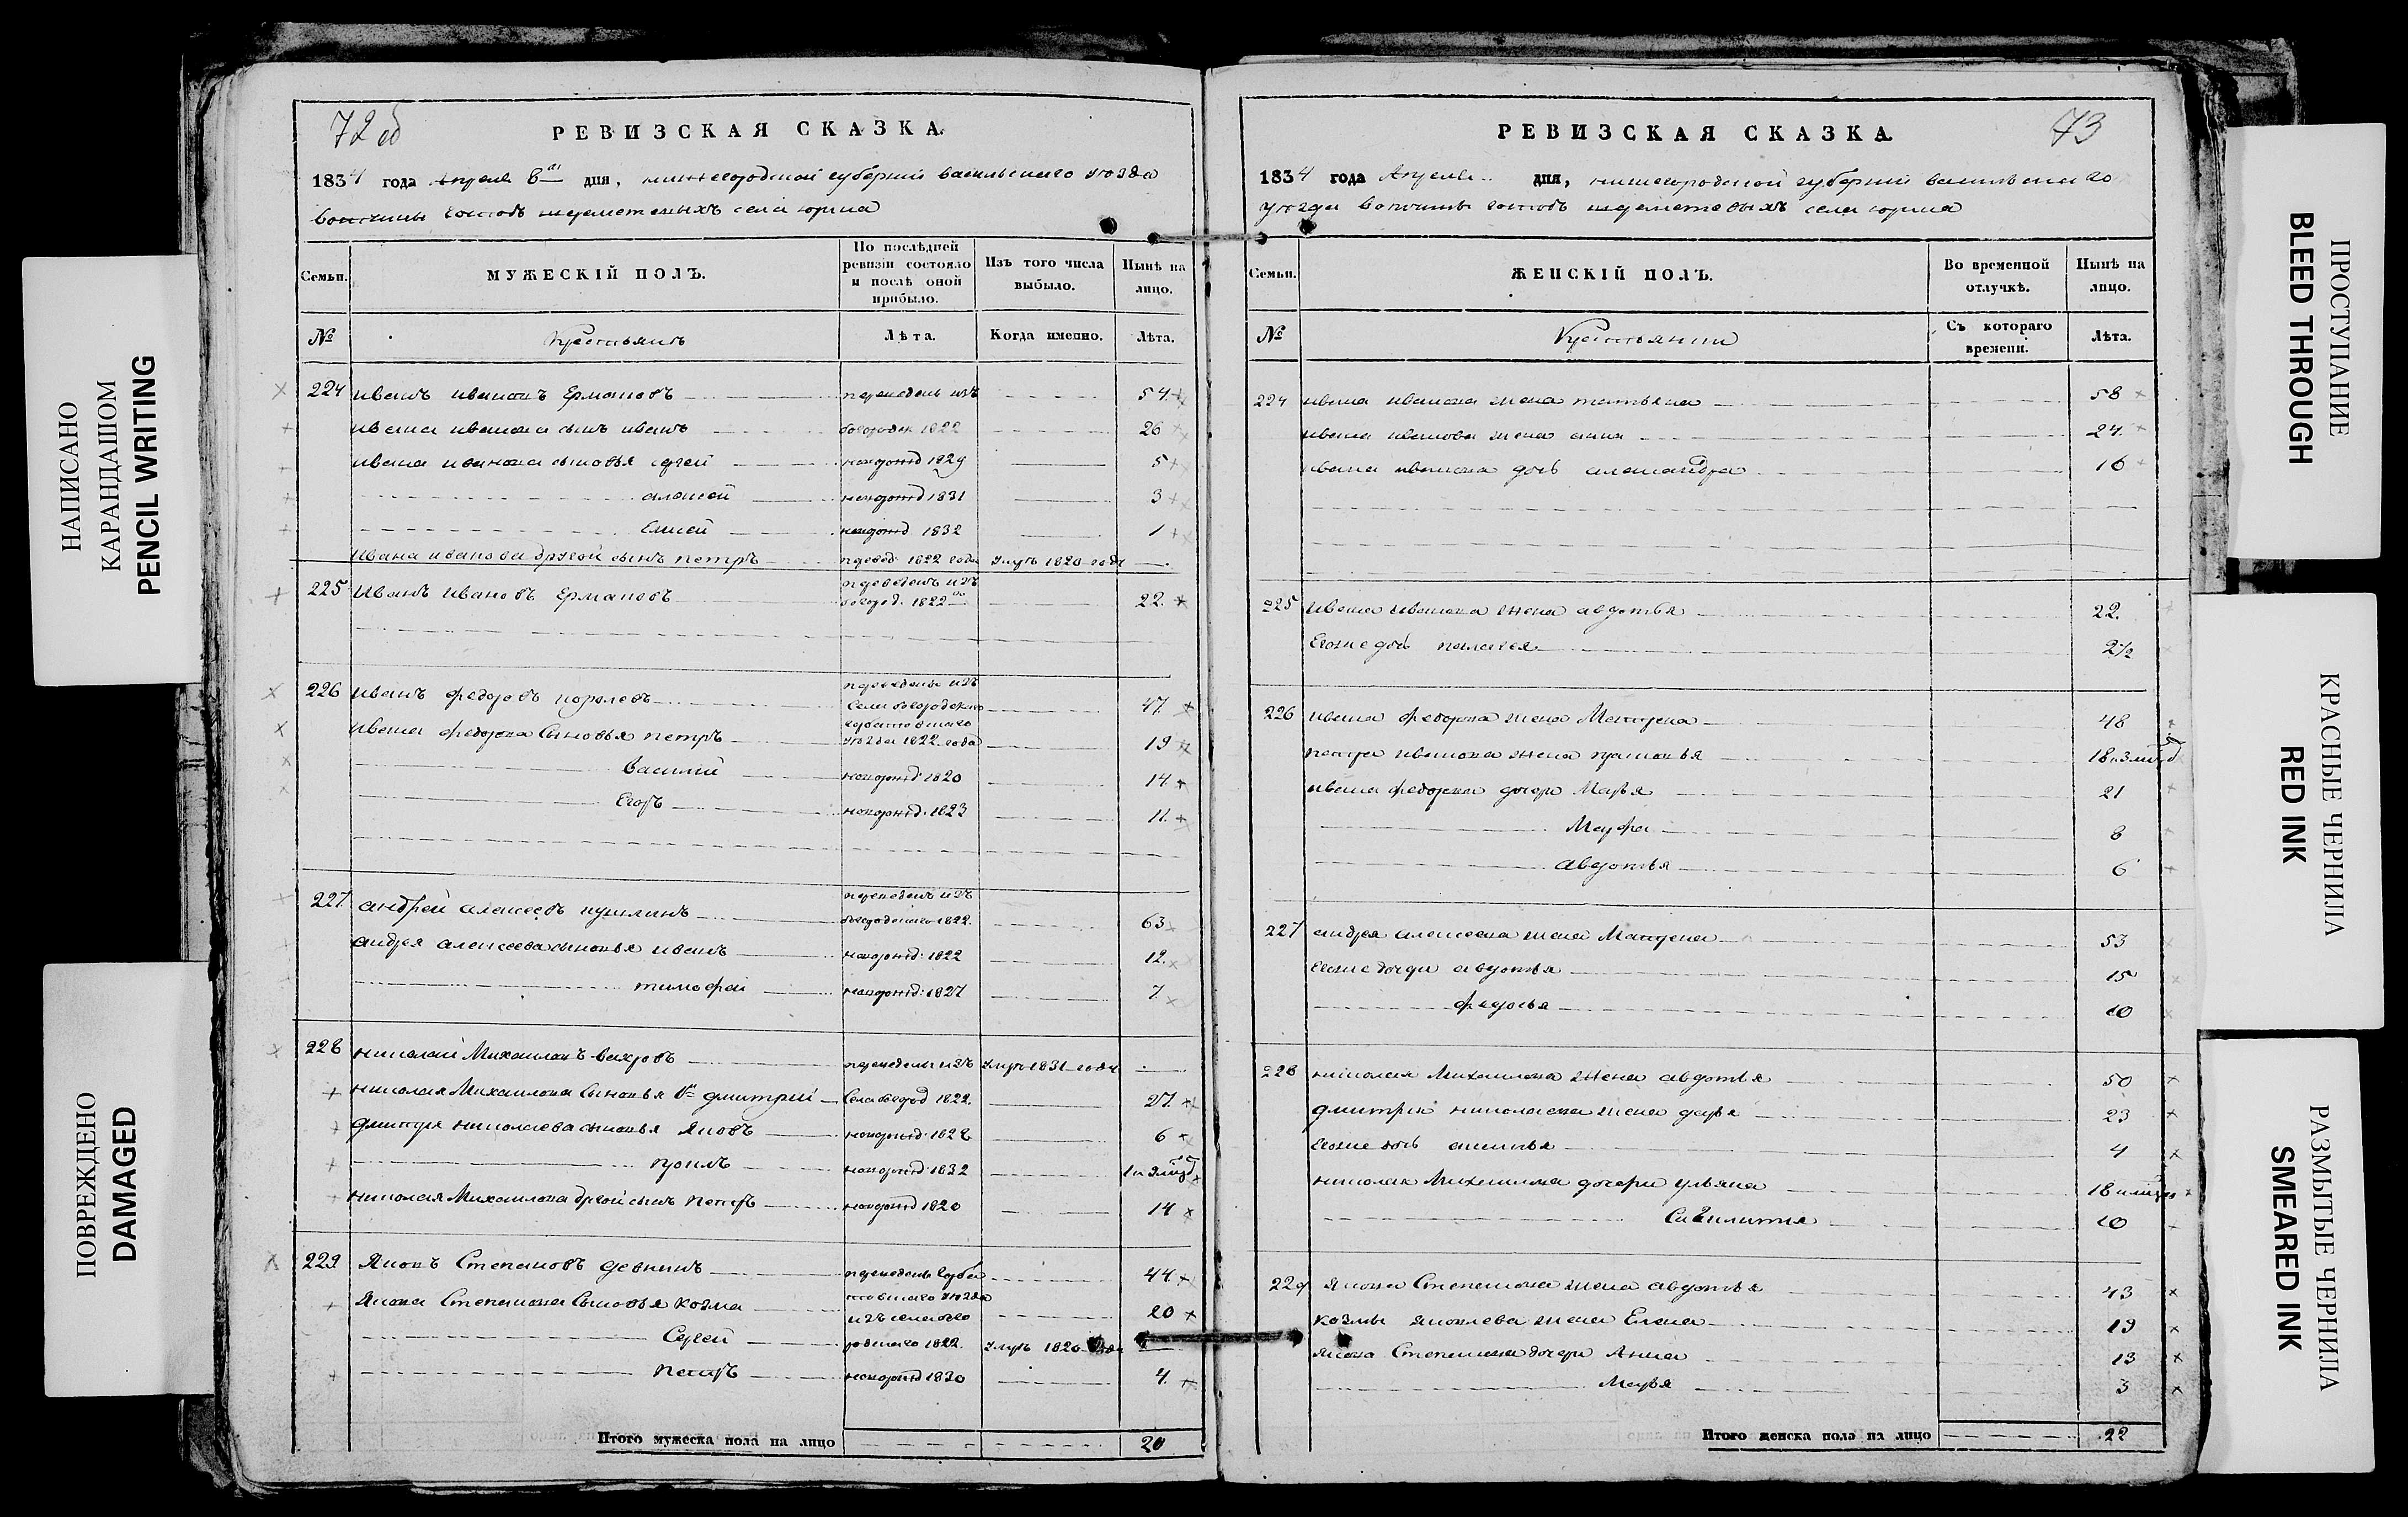 НАПИСАНО
КАРАНДАШОМ
PENCIL WRITING
ПОВРЕЖДЕНО
DAMAGED
72 об
РЕВИЗСКАЯ СКАЗКА.
1834 года Апреля 6 дня, нижегородской губернии васильскаго уезда
вотчины господъ шереметевыхъ села юрина
Семьи.
МУЖЕСКІЙ ПОЛЪ.
По послѣдней ревизіи состояло и послѣ оной прибыло.
Изъ того числа выбыло.
Нынѣ на лицо.
№
Крестьянъ
Лѣта.
Когда именно.
Лѣта.
224 иванъ ивановъ Ермаковъ переведенъ изъ 54
ивана иванова сынъ иванъ богородск 1822 26
ивана иванова сыновья сергей новорожд 1829 5
алексей новорожд 1831 3
Елисей новорожд 1832 1
ивана иванова другой сынъ петръ перевед 1822 года умръ 1820 года
225 иванъ ивановъ Ермаковъ переведенъ изъ богород. 1822 22.
226 иванъ федоровъ королевъ переведены изъ села богородскаго 47.
ивана федорова сыновья петръ уезда 1822 года 19
василий новорожд 1820 14.
Егоръ новорожд. 1823 11.
227. андрей алексеевъ переведенъ изъ богородскаго 1822. 63
андрея алексеева сыновья иванъ новорожд: 1822 12.
тимофей новорожд: 1827 7.
228 николай Михаиловъ вихровъ переведены изъ умръ 1831 года
николая Михаилова сыновья 1й дмитрий села богород 1822. 27.
дмитрия николаева сыновья Яковъ новорожд: 1828 6
новорожд 1832
николая Михаилова другой сынъ петръ новорожд 1820 14
229. Яковъ Степановъ переведены горба 44
Якова Степанова сыновья козма товскаго уезда изъ села бого 20
Сергей родскаго 1822. умръ 1826 года
петръ новорожд 1830 4.
Итого мужеска пола на лицо 20
73
РЕВИЗСКАЯ СКАЗКА.
1834 года Апреля дня, нижегородской губернии васильскаго
уезда вотчины господъ шереметевыхъ села юрина
Семьи.
ЖЕНСКІЙ ПОЛЪ.
Во временной отлучкѣ.
Нынѣ на лицо.
№
Крестьянки
Съ котораго времени.
Лѣта.
224 ивана иванова жена татьяна 58
ивана иванова жена анна 24.
ивана иванова дочь александра 16
225 ивана иванова жена авдотья 22.
Егоже дочь пелагея 2½
226 ивана федорова жена Матрена 48
петра иванова жена прасковья
ивана федорова дочери Марья 21
Марфа 8
авдотья 6
227 андрея алексеева жена Матрена 53
Егоже дочери авдотья 15
федосья 10
228 николая Михаилова жена авдотья 50
дмитрия николаева жена дарья 23
Егоже дочь аксинья 4
николая Михаилова дочери ульяна
10
229 Якова Степанова жена авдотья 43
козмы Яковлева жена Елена 19
Якова Степанова дочери Анна 13
Марья 3
Итого женска пола на лицо 22
ПРОСТУПАНИЕ
BLEED THROUGH
КРАСНЫЕ ЧЕРНИЛА
RED INK
РАЗМЫТЫЕ ЧЕРНИЛА
SMEARED INK